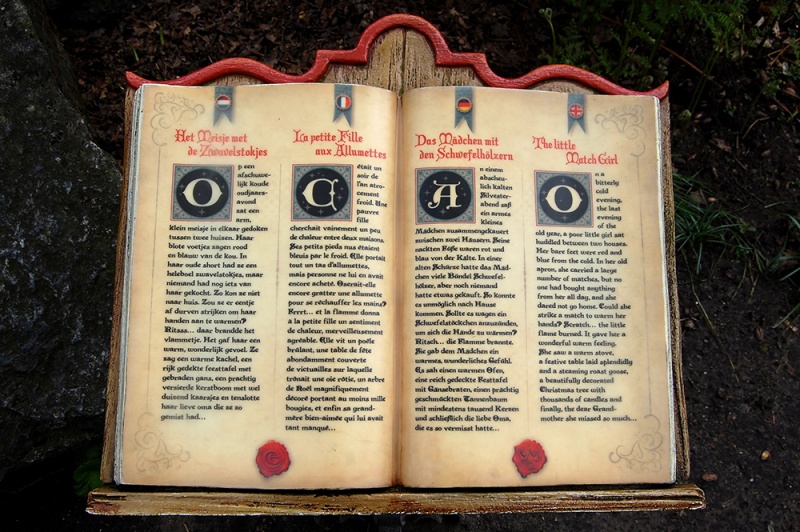 Het Meisje met
de Zwavelstokjes
O
p een
afschuwe-
lijk koude
oudjaars-
avond
zat een
arm,
klein meisje in elkaar gedoken
tussen twee huisen. Haar
blote voetjes zagen rood
en blauw van de kou. In
haar oude short had ze een
heleboel zwavelstokjes, maar
niemand had nog iets van
haar gekocht. Zo kon ze niet
naar huis. Zou ze er eentje
af durven strijken om haar
handen aan te warmen?
Ritsss... daar brandde het
vlammetje. Het gaf haar een
warm, wonderlijk gevoel. Ze
zag een warme kachel, een
rijk gedekte feesttafel met
gebraden gans, een prachtig
versierde kerstboom met wel
duisend kaarsjes en tenslotte
haar lieve oma die ze zo
gemist had...
La petite Fille
aux Allumettes
C
était un
soir de
l'an atro-
cement
froid. Une
pauvre
fille
cherchait vainement un peu
de chaleur entre deux maisons.
Ses petits pieds nus étaient
bleuis par le froid. Elle portait
tout un tas d'allumettes,
mais personne ne lui en avait
encore acheté. Oserait-elle
encore gratter une allumette
pour se réchauffer les mains?
Frrrt... et la flamme donna
à la petite fille un sentiment
de chaleur, merveilleusement
agréable. Elle vit un poêle
brûlant, une table de fête
abondamment couverte
de victuailles sur laquelle
trônait une oie rôtie, un arbre
de Noël magnifiquement
décoré portant au moins mille
bougies, et enfin sa grand-
mère bien-aimée qui lui avait
tant manqué...
Das Mädchen mit
den Schwefelhölzern
A
n einem
abscheu-
lich kalten
Silvester-
abend saß
ein armes
kleines
Mädchen zusammengekauert
zwischen zwei Häusern. Seine
nackten Füße waren rot und
blau von der Kälte. In einer
alten Schürze hatte das Mäd-
chen viele Bündel Schwefel-
hölzer, aber noch niemand
hatte etwas gekauft. So konnte
es unmöglich nach Hause
kommen. Sollte es wagen ein
Schwefelstöckchen anzuzünden,
um sich die Hände zu wärmen?
Ritsch... die Flamme brannte.
Sie gab dem Mädchen ein
warmes, wunderliches Gefühl.
Es sah einen warmen Ofen,
eine reich gedeckte Festtafel
mit Gänsebraten, einen prächtig
geschmückten Tannenbaum
mit mindestens tausend Kerzen
und schließlich die liebe Oma,
die es so vermisst hatte...
The little
Match Girl
O
n a
bitterly
cold
evening,
the last
evening
of the
old year, a poor little girl sat
huddled between two houses.
Her bare feet were red and
blue from the cold. In her old
apron, she carried a large
number of matches, but no
one had bought anything
from her all day, and she
dared not go home. Could she
strike a match to warm her
hands? Scratch... the little
flame burned. It gave her a
wonderful warm feeling.
She saw a warm stove,
a festive table laid splendidly
and a steaming roast goose,
a beautifully decorated
Christmas tree with
thousands of candles and
finally, the dear Grand-
mother she missed so much...